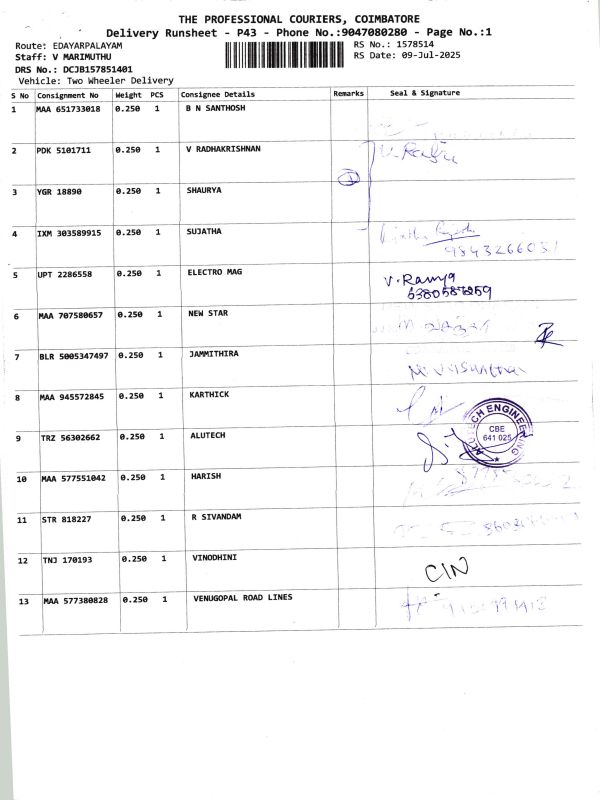 THE PROFESSIONAL COURIERS, COIMBATORE
Delivery Runsheet - P43 - Phone No.:9047080280 - Page No.:1
Route: EDAYARPALAYAM
Staff: V MARIMUTHU
DRS No.: DCJB157851401
Vehicle: Two Wheeler Delivery
RS No.: 1578514
RS Date: 09-Jul-2025
S No Consignment No Weight PCS Consignee Details Remarks Seal & Signature
1 MAA 651733018 0.250 1 B N SANTHOSH
2 PDK 5101711 0.250 1 V RADHAKRISHNAN
3 YGR 18890 0.250 1 SHAURYA
4 IXM 303589915 0.250 1 SUJATHA
5 UPT 2286558 0.250 1 ELECTRO MAG V. Ramya
6 MAA 707580657 0.250 1 NEW STAR
7 BLR 5005347497 0.250 1 JAMMITHIRA
8 MAA 945572845 0.250 1 KARTHICK
9 TRZ 56302662 0.250 1 ALUTECH ALUTECH ENGINEERING CBE 641 025
10 MAA 577551042 0.250 1 HARISH
11 STR 818227 0.250 1 R SIVANDAM
12 TNJ 170193 0.250 1 VINODHINI CIN
13 MAA 577380828 0.250 1 VENUGOPAL ROAD LINES